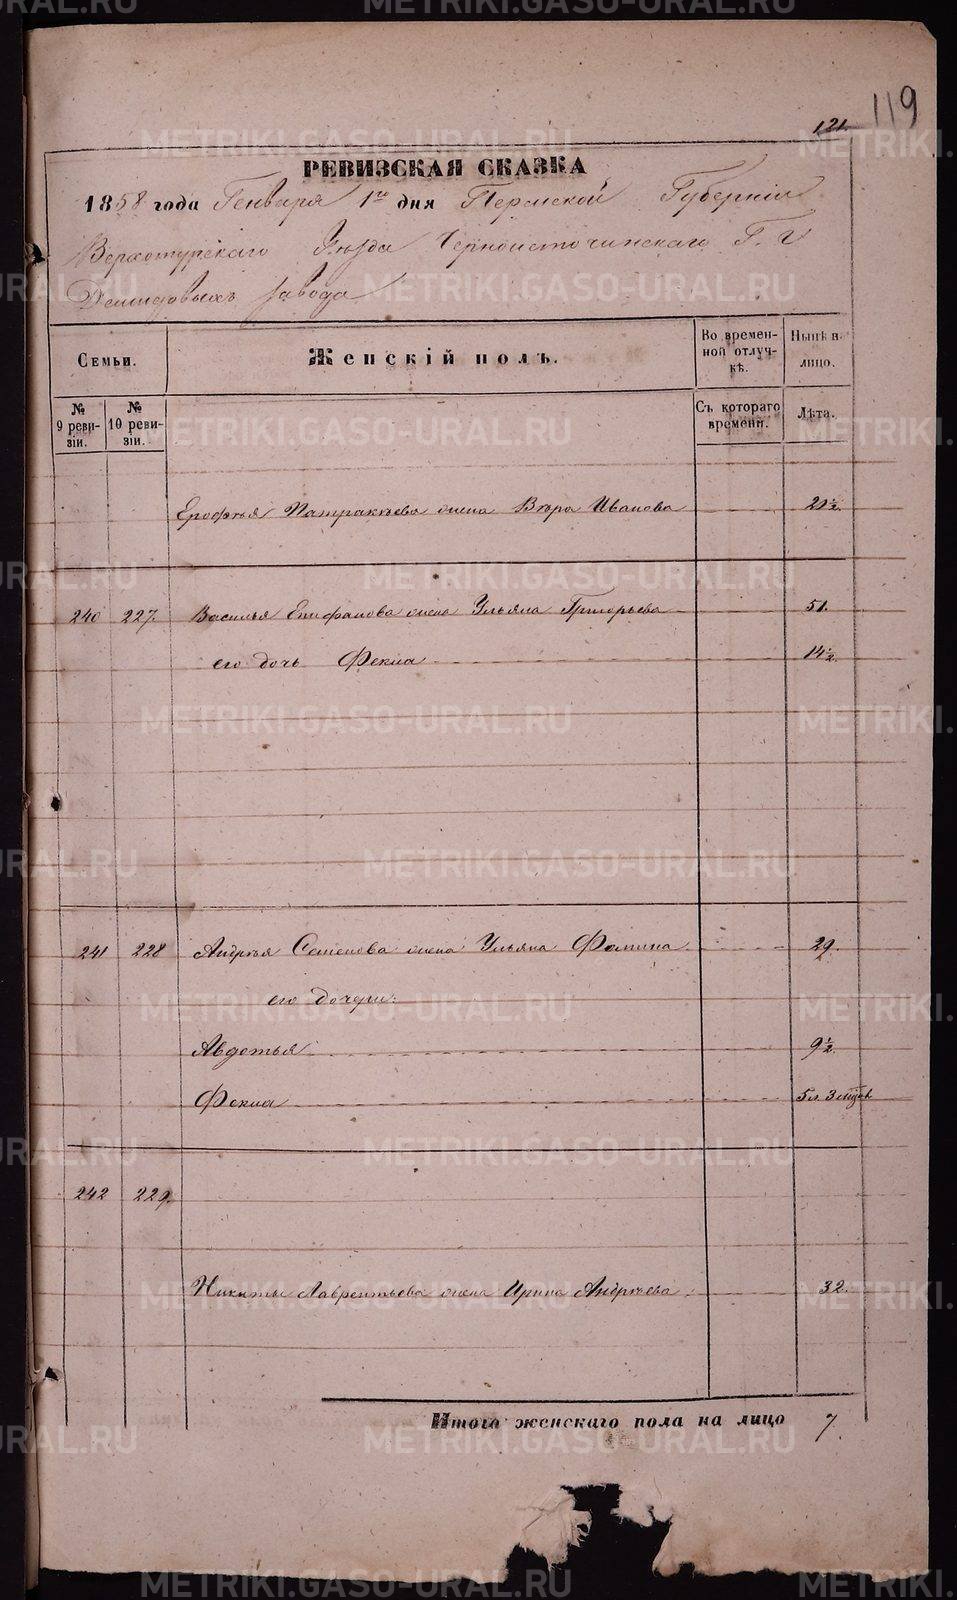 119
121.
РЕВИЗСКАЯ СКАЗКА
1858 года Генваря 1го дня Пермской Губерніи
Верхотурскаго Уѣзда Черноисточинскаго Г. Г
Демидовыхъ завода
Семьи.
Женскій полъ.
Во времен-
ной отлуч-
кѣ.
Нынѣ н
лицо.
№
9 реви-
зіи.
№
10 реви-
зіи.
Съ котораго
времени.
Лѣта.
Ерофѣя Патракѣева жена Вѣра Иванова 21½.
240 227. Василья Епифанова жена Ульяна Григорьева 51.
его дочь Фекла 14½.
241 228 Андрѣя Семенова жена Ульяна Фомина 29.
его дочери:
Авдотья 9½.
Фекла 5 л. 3 мѣсяц
242 229.
Никиты Лаврентьева жена Ирина Андрѣева 32.
Итого женскаго пола на лицо 7.
METRIKI.GASO-URAL.RU